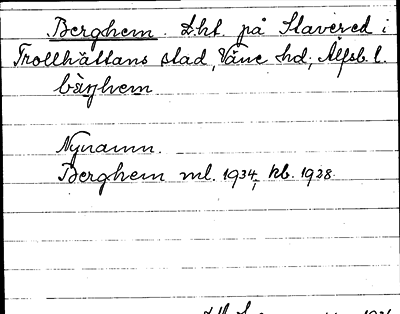 Berghem. Lht. på Slavered i
Trollhättans stad, Väne hd, Älfsb. l.
bärjhem
Nynamn.
Berghem ml. 1934, kb. 1928.